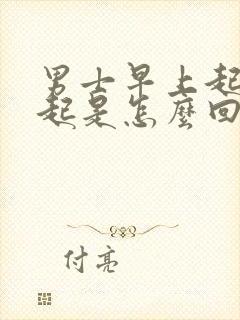 男士早上起
起是怎麼回
付亮